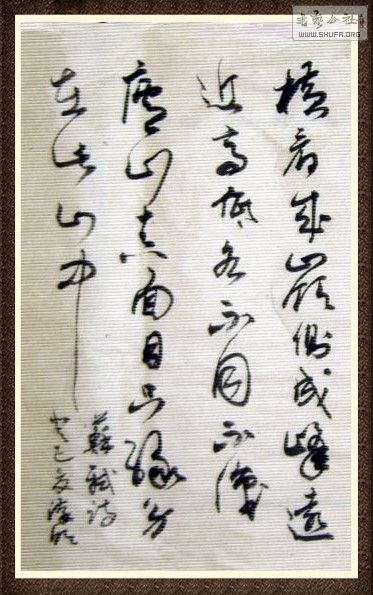 書藝公社
WWW.SHUFA.ORG
橫看成嶺側成峰遠
近高低各不同不識
廬山真面目只緣身
在此山中
蘇軾詩
癸巳